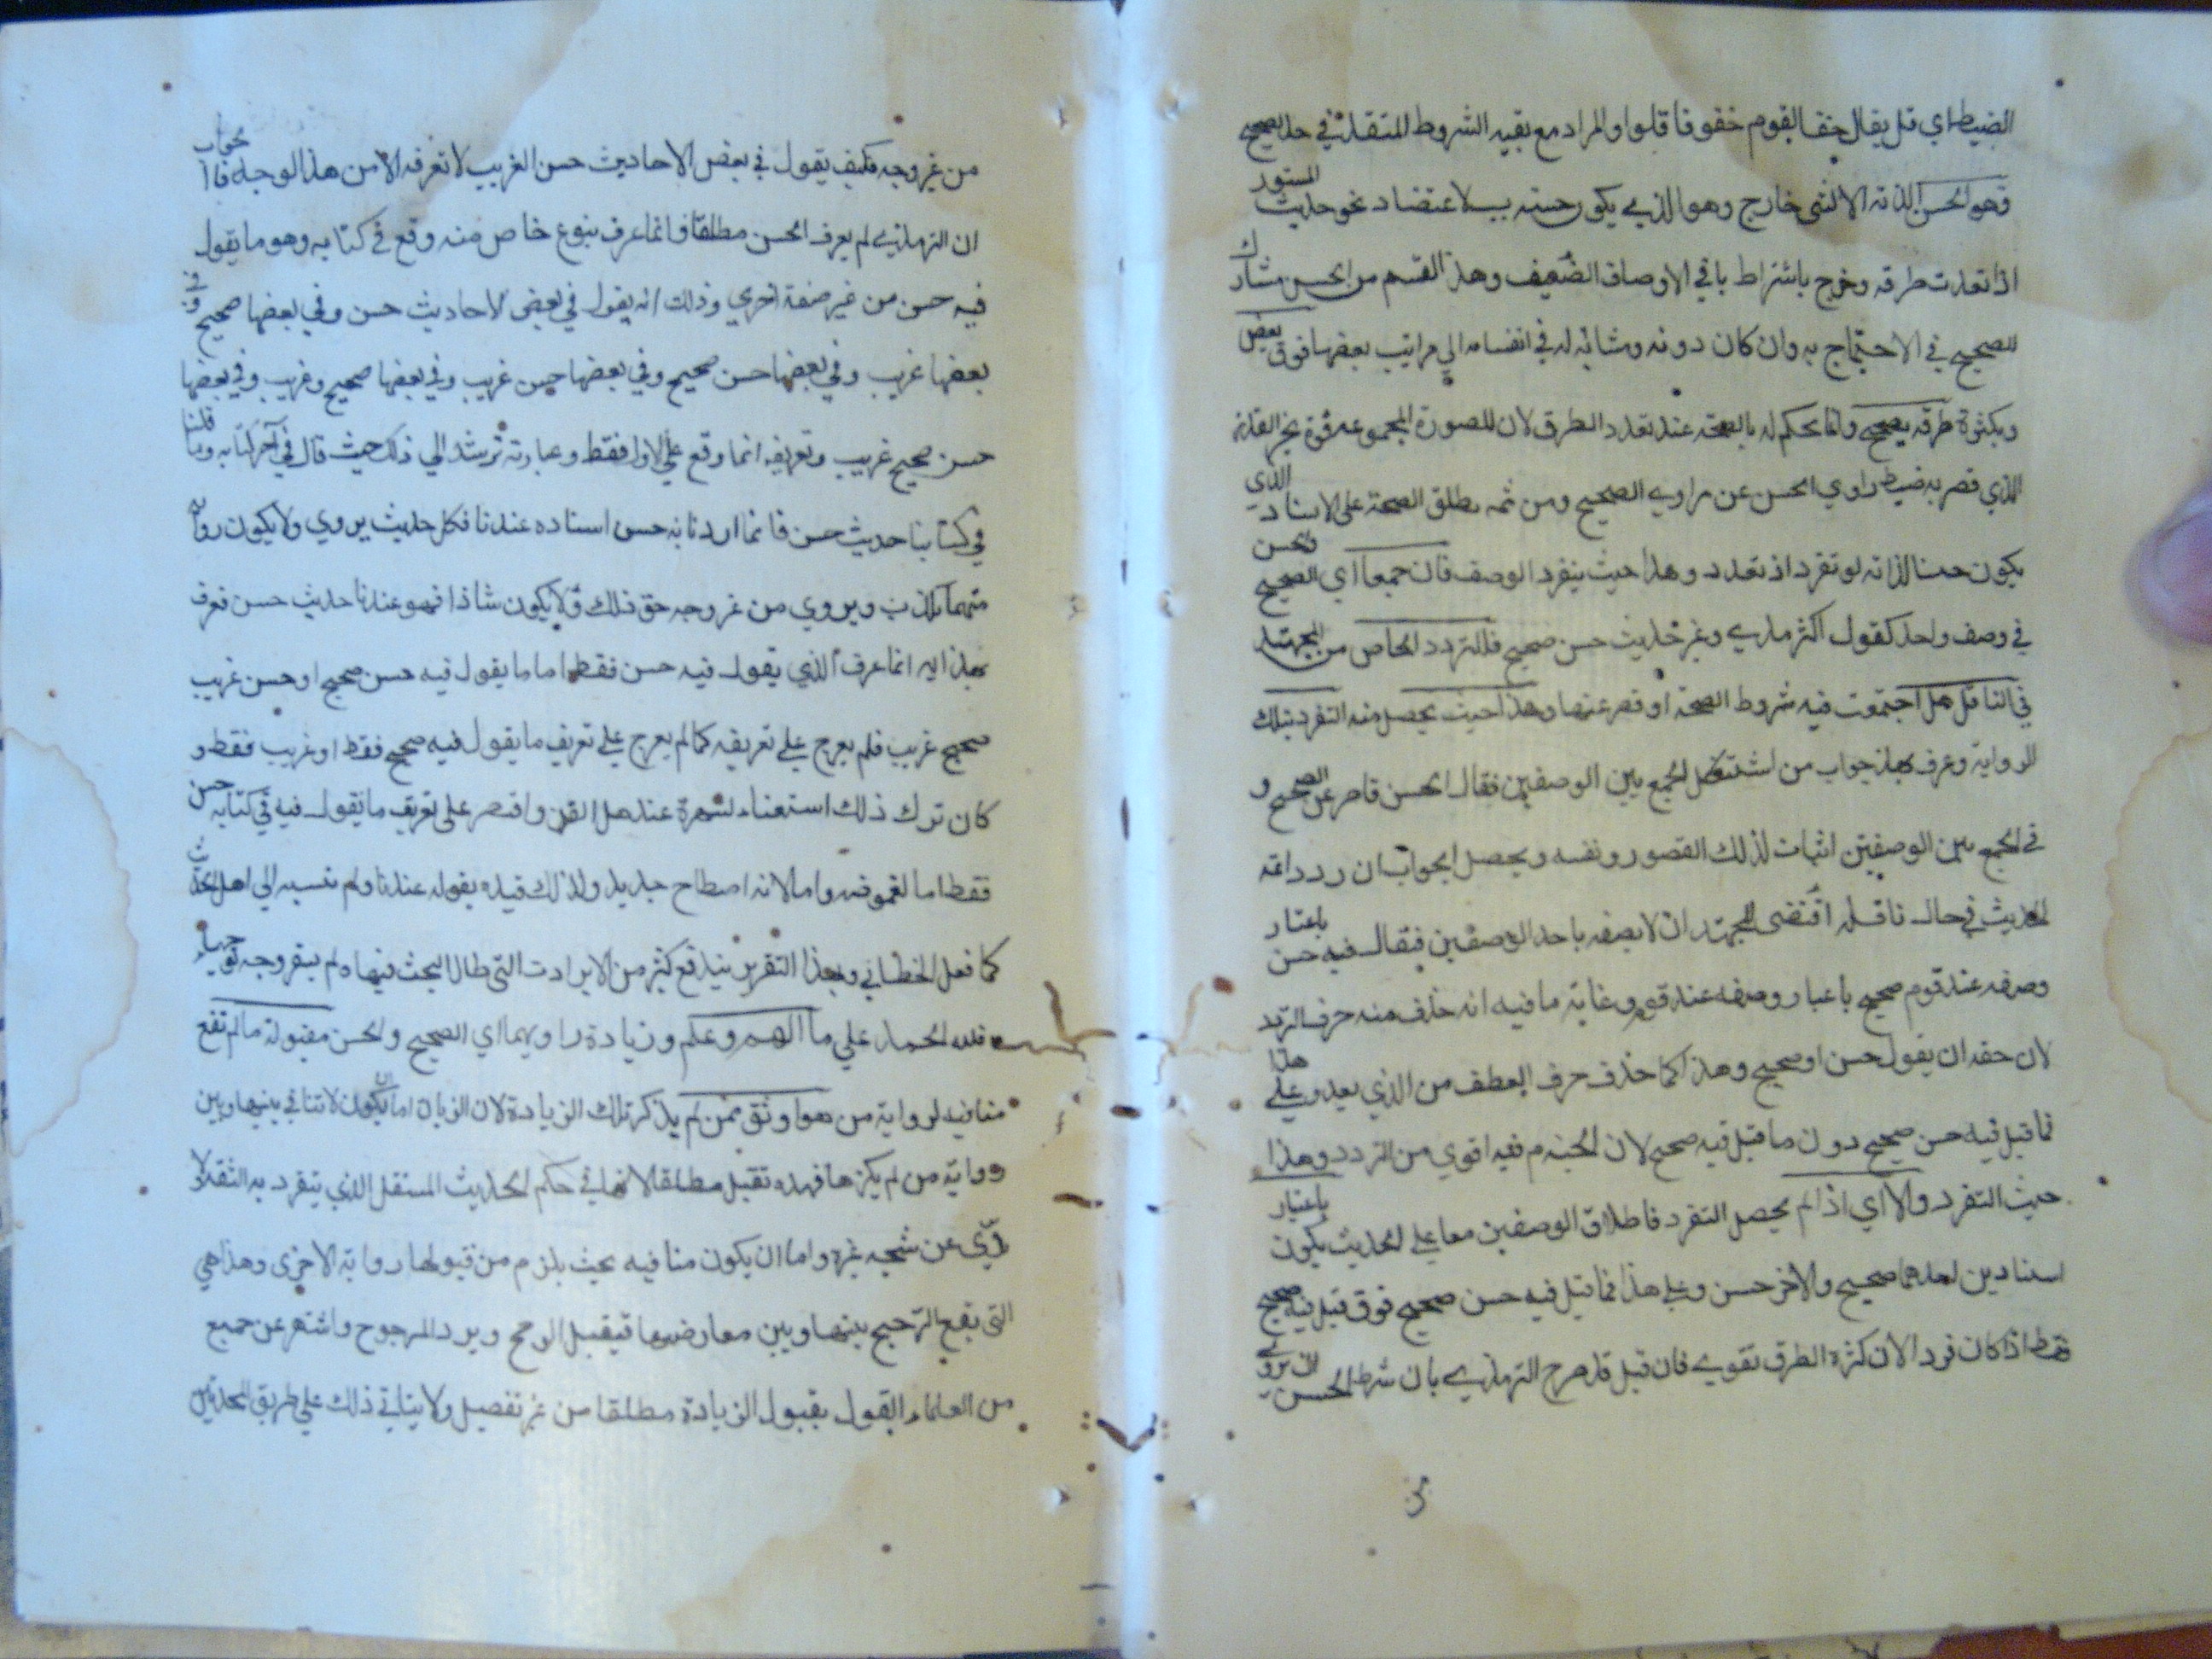 الضبط اي قل يقال خف القوم خفوفا قلوا والمراد مع بقيه الشروط المتقدمة في حد الصحيح
فهو الحسن لذاته لا لشي خارج وهو الذي يكون حسنه بسبب الاعتضاد نحو حديث المستور
اذا تعددت طرقه وخرج باشتراط باقي الاوصاف الضعيف وهذا القسم من الحسن مشارك
للصحيح في الاحتجاج به وان كان دونه ومشابه له في انقسامه الي مراتب بعضها فوق بعض
وبكثرة طرقه يصحح وانما يحكم له بالصحة عند تعدد الطرق لان للصورة المجموعه قوة تجبر القدر
الذي قصر به ضبط راوي الحسن عن راوي الصحيح ومن ثمه يطلق الصحة على الاسناد الذي
يكون حسنا لذاته لو تفرد اذ تعدد وهذا حيث ينفرد الوصف فان جمعا اي الصحيح والحسن
في وصف واحد كقول الترمذي وغيره حديث حسن صحيح فللتردد الحاصل من المجتهد
في الناقل هل اجتمعت فيه شروط الصحة او قصر عنها وهذا حيث يحصل منه التفرد بتلك
الرواية وعرف بهذا جواب من استشكل الجمع بين الوصفين فقال الحسن قاصر عن الصحيح و
في الجمع بين الوصفين اثبات لذلك القصور ونفسه ويحصل الجواب ان تردد ائمة
الحديث في حال ناقله اقتضى للمجتهد ان لا يصفه باحد الوصفين فيقال فيه حسن باعتبار
وصفه عند قوم صحيح باعتبار وصفه عند قوم وغاية ما فيه انه حذف منه حرف التردد
لان حقه ان يقول حسن او صحيح وهذا كما حذف حرف العطف من الذي بعده وعلي هذا
فما قيل فيه حسن صحيح دون ما قيل فيه صحيح لان الجزم فيه اقوي من التردد وهذا
حيث التفرد والا اي اذا لم يحصل التفرد فاطلاق الوصفين معا علي الحديث يكون باعتبار
اسنادين احدهما صحيح والاخر حسن وعلي هذا فما قيل فيه حسن صحيح فوق قيل فيه صحيح
فقط اذا كان فردا لان كثرة الطرق تقوي فان قيل قد صرح الترمذي بان شرط الحسن ان يروي
من غير وجه فكيف يقول في بعض الاحاديث حسن الغريب لا نعرفه الا من هذا الوجه فالجواب
ان الترمذي لم يعرف الحسن مطلقا وانما عرف بنوع خاص منه وقع في كتابه وهو ما يقول
فيه حسن من غير صفة اخري وذلك انه يقول في بعض الاحاديث حسن وفي بعضها صحيح وفي
بعضها غريب وفي بعضها حسن صحيح وفي بعضها حسن غريب وفي بعضها صحيح وغريب وفي بعضها
حسن صحيح غريب وتعريفه انما وقع علي الاول فقط وعبارته ترشد الي ذلك حيث قال في آخر كتابه وما قلنا
في كتابنا حديث حسن فانما اردنا به حسن اسناده عندنا فكل حديث يروي ولا يكون رواته
متهما بالكذب ويروي من غير وجه حق ذلك ولا يكون شاذا فهو عندنا حديث حسن فعرف
بهذا انه انما عرف الذي يقول فيه حسن فقط اما ما يقول فيه حسن صحيح او حسن غريب
صحيح غريب فلم يعرج علي تعريفه كما لم يعرج علي تعريف ما يقول فيه صحيح فقط او غريب فقط و
كان ترك ذلك استغناء لشهرة عند اهل الفن واقتصر على تعريف ما يقول فيه في كتابه حسن
فقط اما لغموضه واما لانه اصطلاح جديد ولذلك قيده بقوله عندنا ولم ينسبه الي اهل الحديث
كما فعل الخطابي وبهذا التقرير يندفع كثير من الايرادات التي طال البحث فيها ولم يسفر وجه توجيهها
فلله الحمد علي ما الهم وعلم وزيادة راويهما اي الصحيح والحسن مقبولة ما لم تقع
منافيه لرواية من هو اوثق ممن لم يذكر تلك الزيادة لان الزيادة اما ان يكون لا تنافي بينها وبين
رواية من لم يذكرها فهذه تقبل مطلقا لانها في حكم الحديث المستقل الذي يتفرد به الثقة ولا
يروي عن شيخه غيره واما ان يكون منافيه بحيث يلزم من قبولها رد رواية الاخرى وهذا هي
التي يقع الترجيح بينها وبين معارضها فيقبل الراجح ويرد المرجوح واشتهر عن جميع
من العلماء القول بقبول الزيادة مطلقا من غير تفصيل ولا يتاتي ذلك علي طريق المحدثين